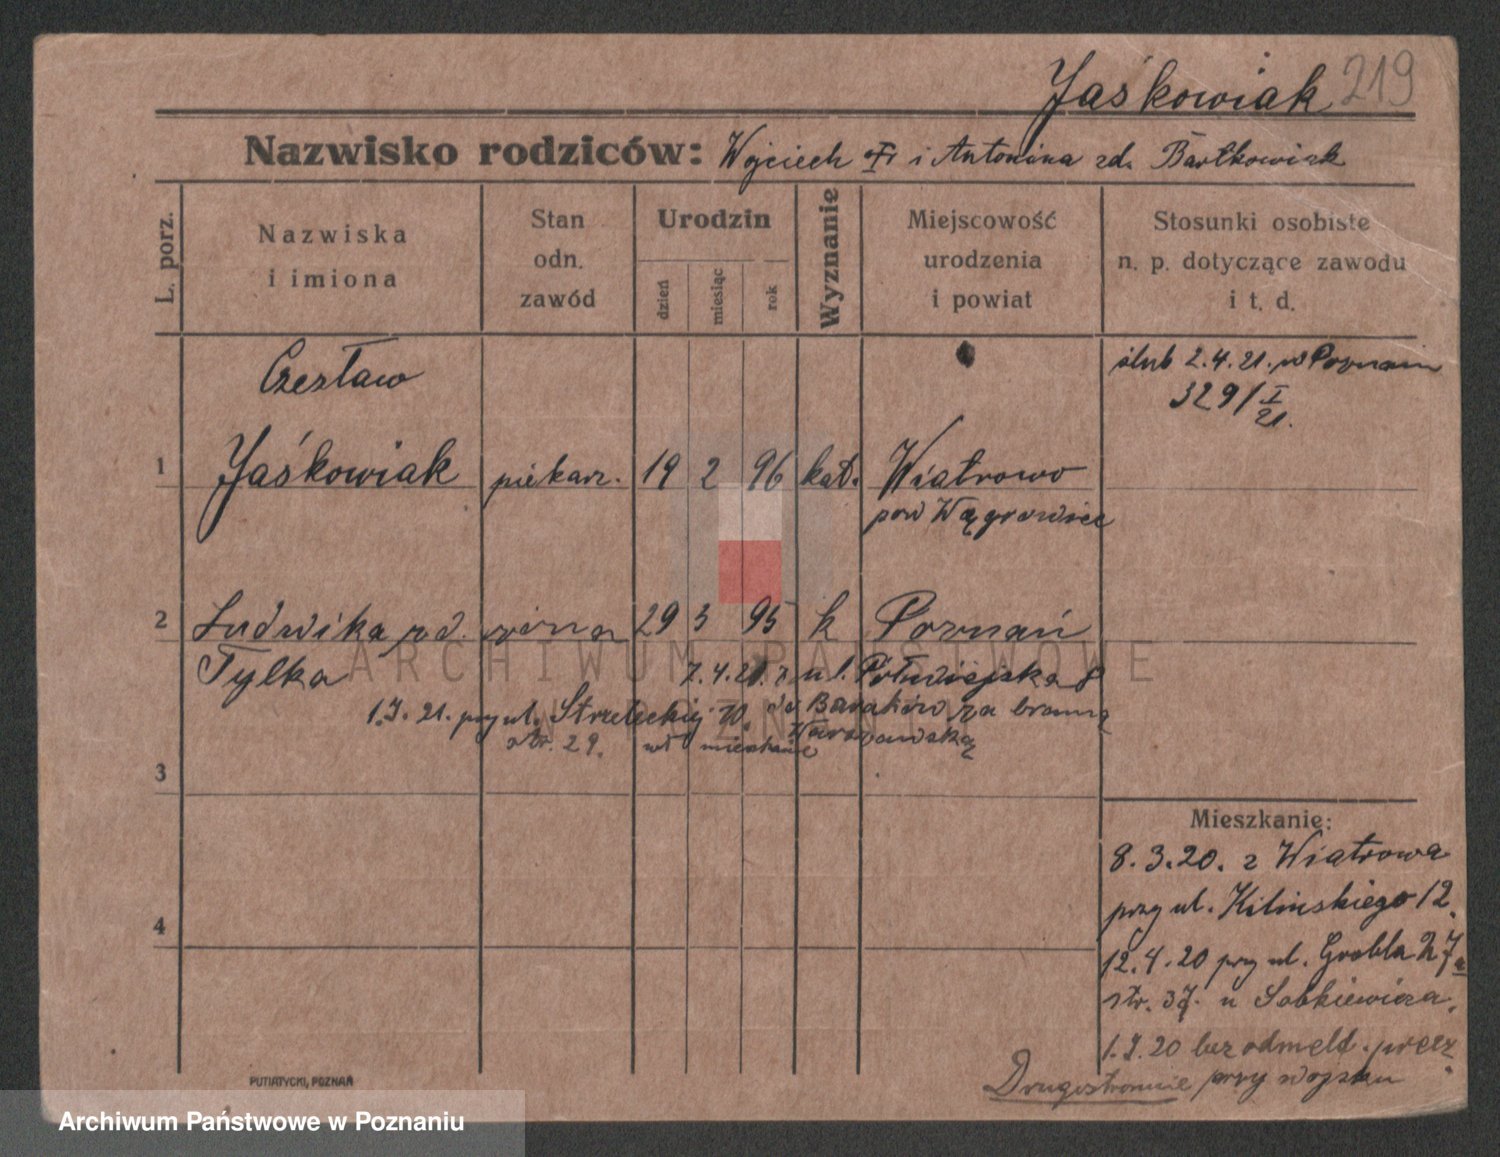 Jaśkowiak 219
Nazwisko rodziców: Wojciech i Antonina zd. Bartkowiak
L. porz.
Nazwiska
i imiona
Stan
odn.
zawód
Urodzin
dzień
miesiąc
rok
Wyznanie
Miejscowość
urodzenia
i powiat
Stosunki osobiste
n. p. dotyczące zawodu
i t. d.
Czesław
ślub 2.4.21. w Poznaniu
329/I
21.
1 Jaśkowiak piekarz. 19 2 96 kat. Wiatrowo
pow Wągrowiec
2 Ludwika zd. żona 29 5 95 k Poznań
Tylka
7.4.21. ul. Półwiejska 8
1.7.21. przy ul. Strzeleckiej 10. do Baraków za bramą
str. 29. wł mieszkanie Warszawską
3
Mieszkanie:
8.3.20. z Wiatrowa
przy ul. Kilińskiego 12.
4
12.4.20 przy ul. Grobla 27a
str. 37. u Sobkiewicza.
1.7.20 bez odmeld. precz
Drugostronnie przy wojsku
PUTIATYCKI, POZNAŃ
ARCHIWUM PAŃSTWOWE
W POZNANIU
Archiwum Państwowe w Poznaniu